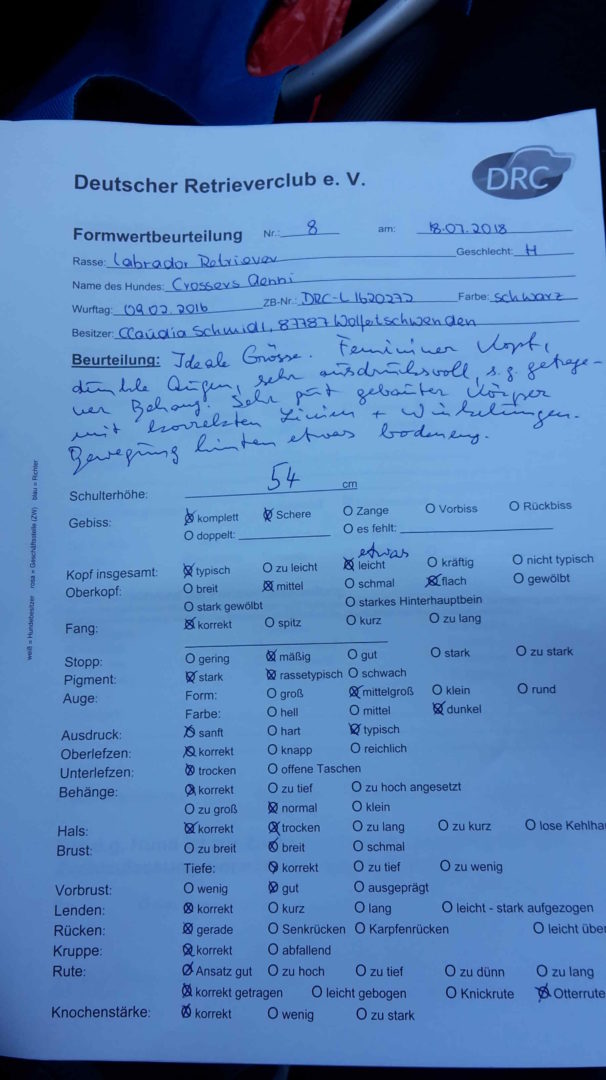 Deutscher Retrieverclub e. V.
DRC
Formwertbeurteilung Nr.: 8 am: 18.07.2018
Rasse: Labrador Retriever Geschlecht: H
Name des Hundes: Crossers Aenni
Wurftag: 09.02.2016 ZB-Nr.: DRC-L 1620272 Farbe: schwarz
Besitzer: Claudia Schmidt, 87787 Wolfetschwenden
Beurteilung: Ideale Grösse. Femininer Kopf,
dunkle Augen, sehr ausdrucksvoll, s.g. getrage-
ner Behang. Sehr gut gebauter Körper
mit korrekten Linien + Winkelungen.
Bewegung hinten etwas bodeneng.
Schulterhöhe: 54 cm
Gebiss: komplett Schere O Zange O Vorbiss O Rückbiss
O doppelt: O es fehlt:
etwas
Kopf insgesamt: typisch O zu leicht leicht O kräftig O nicht typisch
Oberkopf: O breit mittel O schmal flach O gewölbt
O stark gewölbt O starkes Hinterhauptbein
Fang: korrekt O spitz O kurz O zu lang
Stopp: O gering mäßig O gut O stark O zu stark
Pigment: stark rassetypisch O schwach
Auge: Form: O groß mittelgroß O klein O rund
Farbe: O hell O mittel dunkel
Ausdruck: sanft O hart typisch
Oberlefzen: korrekt O knapp O reichlich
Unterlefzen: trocken O offene Taschen
Behänge: korrekt O zu tief O zu hoch angesetzt
O zu groß normal O klein
Hals: korrekt trocken O zu lang O zu kurz O lose Kehlha
Brust: O zu breit breit O schmal
Tiefe: korrekt O zu tief O zu wenig
Vorbrust: O wenig gut O ausgeprägt
Lenden: korrekt O kurz O lang O leicht - stark aufgezogen
Rücken: gerade O Senkrücken O Karpfenrücken O leicht über
Kruppe: korrekt O abfallend
Rute: Ansatz gut O zu hoch O zu tief O zu dünn O zu lang
korrekt getragen O leicht gebogen O Knickrute Otterrute
Knochenstärke: korrekt O wenig O zu stark
weiß = Hundebesitzer rosa = Geschäftsstelle (ZW) blau = Richter